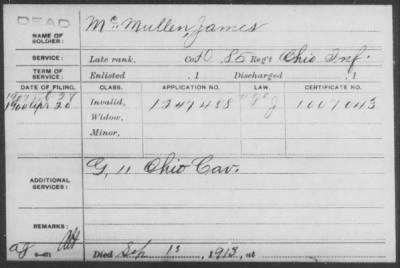 DEAD
NAME OF SOLDIER: McMullen, James
SERVICE: Late rank, Co. D 85 Reg't Ohio Inf.
TERM OF SERVICE: Enlisted , 1 Discharged , 1
DATE OF FILING. CLASS. APPLICATION NO. LAW. CERTIFICATE NO.
1900 Apr 20 Invalid, 1247488 1007043
Widow,
Minor,
ADDITIONAL SERVICES: G, 11 Ohio Cav.
REMARKS:
Died Sep 13, 1913, at